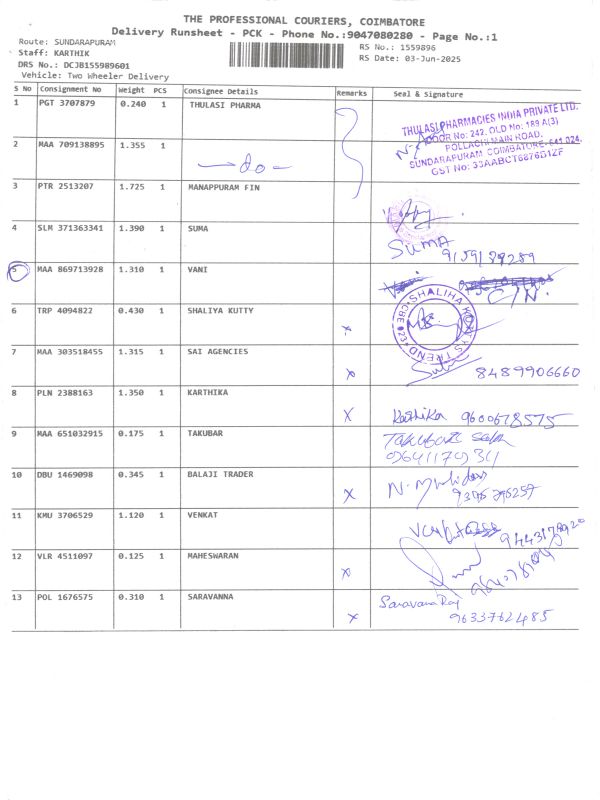 THE PROFESSIONAL COURIERS, COIMBATORE
Delivery Runsheet - PCK - Phone No.:9047080280 - Page No.:1
Route: SUNDARAPURAM
RS No.: 1559896
Staff: KARTHIK
RS Date: 03-Jun-2025
DRS No.: DCJB155989601
Vehicle: Two Wheeler Delivery
S No Consignment No Weight PCS Consignee Details Remarks Seal & Signature
1 PGT 3707879 0.240 1 THULASI PHARMA
THULASI PHARMACIES INDIA PRIVATE LTD.
DOOR No: 242, OLD No: 189 A(3)
POLLACHI MAIN ROAD,
SUNDARAPURAM, COIMBATORE-641 024.
GST No: 33AABCT6876D1ZF
2 MAA 709138895 1.355 1 -do-
3 PTR 2513207 1.725 1 MANAPPURAM FIN
4 SLM 371363341 1.390 1 SUMA
SUMA 9159189289
5 MAA 869713928 1.310 1 VANI
C/N.
6 TRP 4094822 0.430 1 SHALIYA KUTTY x
7 MAA 303518455 1.315 1 SAI AGENCIES x 8489906660
8 PLN 2388163 1.350 1 KARTHIKA x Karthika 9600678575
9 MAA 651032915 0.175 1 TAKUBAR Takubar
10 DBU 1469098 0.345 1 BALAJI TRADER x
11 KMU 3706529 1.120 1 VENKAT
12 VLR 4511097 0.125 1 MAHESWARAN x
13 POL 1676575 0.310 1 SARAVANNA x Saravana Raj
9633762485